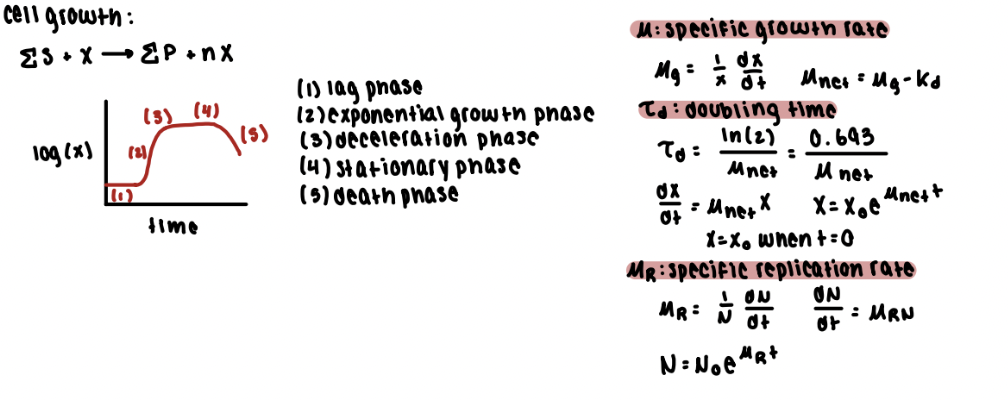 cell growth:
ΣS + X → ΣP + nX
(3) (4)
(5)
log(x) (2)
(1)
time
(1) lag phase
(2) exponential growth phase
(3) deceleration phase
(4) stationary phase
(5) death phase
μ: specific growth rate
μg = 1/x dx/dt μnet = μg - kd
τd: doubling time
τd = ln(2)/μnet = 0.693/μnet
dx/dt = μnet X X = X₀e^μnet t
X = X₀ when t = 0
μR: specific replication rate
μR = 1/N dN/dt dN/dt = μRN
N = N₀e^μRt